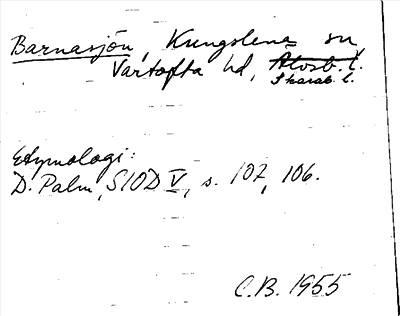 Barnasjön, Kungslena sn,
Vartofta hd, Älvsb. l.
Skarab. l.
Etymologi:
D. Palm, SIOD V, s. 102, 106.
C.B. 1955